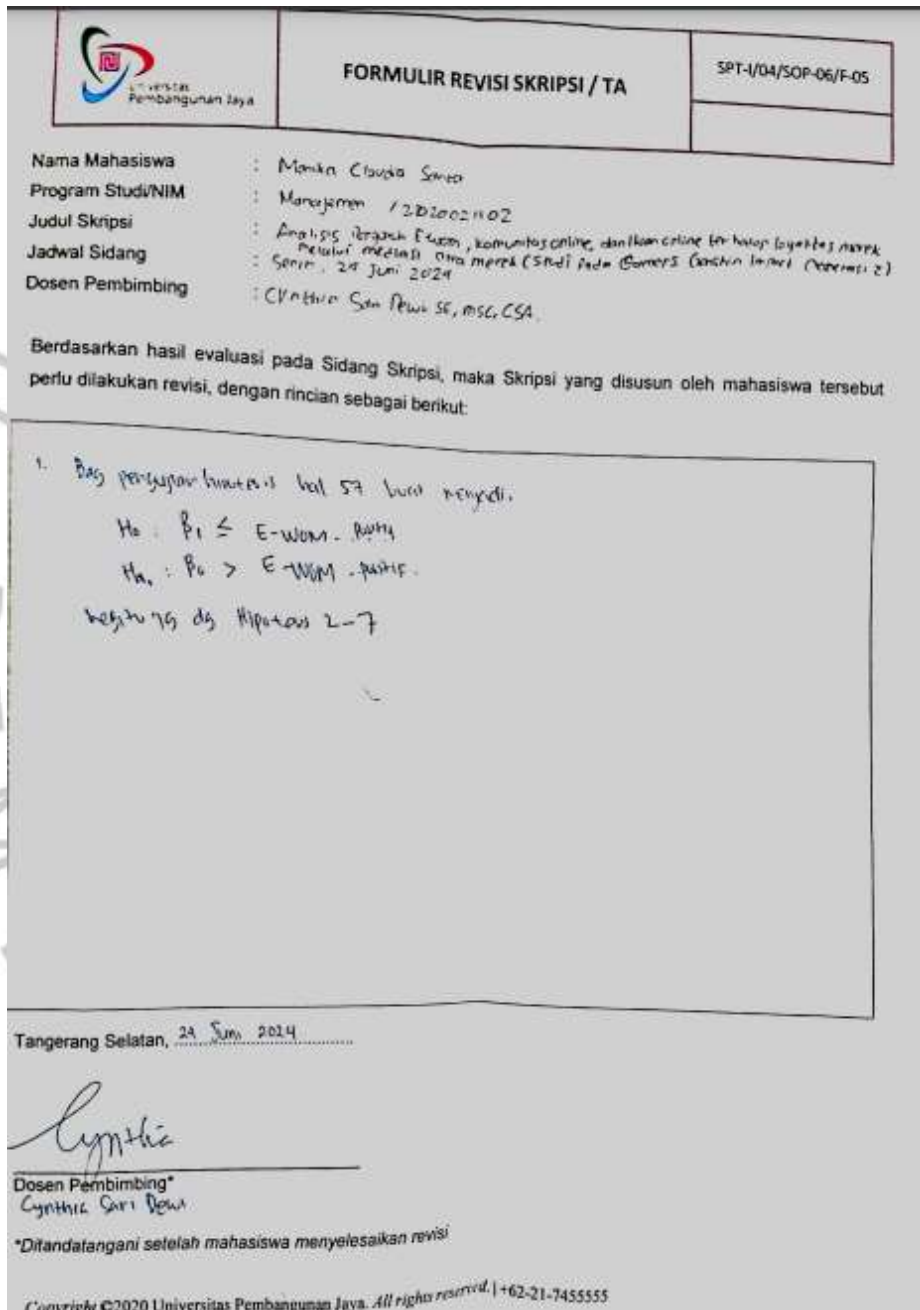 Universitas
Pembangunan Jaya
FORMULIR REVISI SKRIPSI / TA
SPT-I/04/SOP-06/F-05
Nama Mahasiswa : Claudia
Program Studi/NIM : Manajemen /
Judul Skripsi : Analisis E-wom, komunitas online, dan iklan online terhadap loyalitas merek
melalui mediasi citra merek (Studi Pada Gamers Genshin Impact Generasi Z)
Jadwal Sidang : Senin, 24 Juni 2024
Dosen Pembimbing : Cynthia Sari Dewi SE, MSC, CSA.
Berdasarkan hasil evaluasi pada Sidang Skripsi, maka Skripsi yang disusun oleh mahasiswa tersebut
perlu dilakukan revisi, dengan rincian sebagai berikut:
1. Bag hal 57
H₀ : β₁ ≤ E-WOM
: > E-WOM
dg Hipotesis 2-7
Tangerang Selatan, 24 Juni 2024
Cynthia
Dosen Pembimbing*
Cynthia Sari Dewi
*Ditandatangani setelah mahasiswa menyelesaikan revisi
Copyright ©2020 Universitas Pembangunan Jaya. All rights reserved. | +62-21-7455555